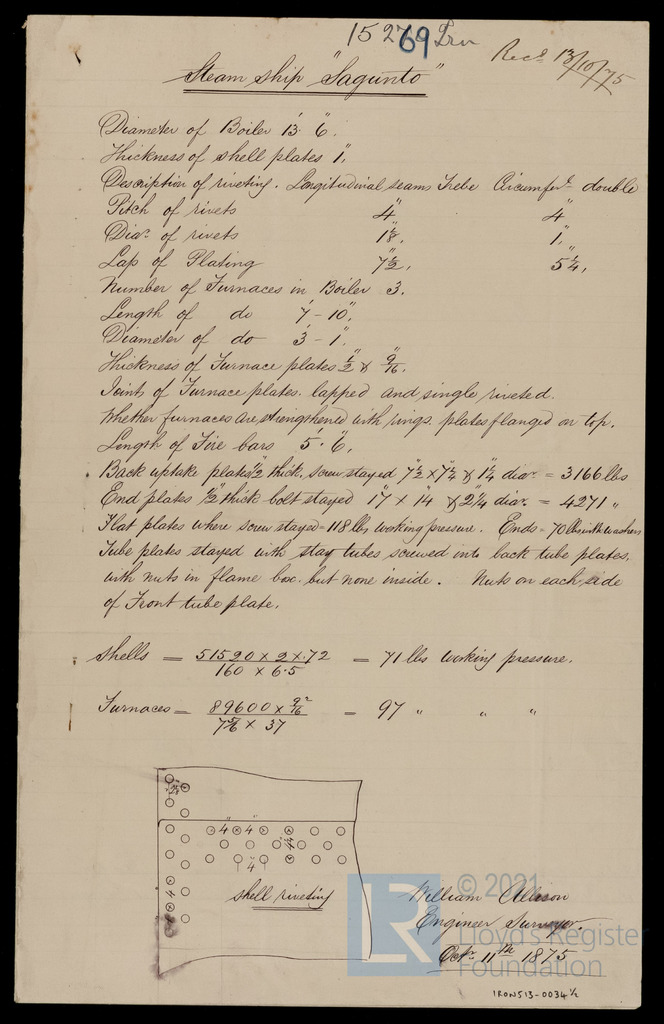 15269 Irn
Recd 13/10/75
Steam ship "Sagunto"
Diameter of Boiler 13' 6".
Thickness of shell plates 1".
Description of riveting. Longitudinal seams Treble Circumferl double
Pitch of rivets 4" 4"
Diar of rivets 1⅛", 1",
Lap of Plating 7½", 5¼",
Number of Furnaces in Boiler 3.
Length of do 7'-10".
Diameter of do 3'-1".
Thickness of Furnace plates ½" & 9/16".
Joints of Furnace plates. lapped and single riveted.
Whether furnaces are strengthened with rings. plates flanged on top.
Length of Fire bars 5'. 6".
Back uptake plates ½" thick, screw stayed 7½" x 7¼" & 1¼" diar = 3166 lbs
End plates ½" thick bolt stayed 17 x 14" & 2¼" diar = 4271 "
Flat plates where screw stayed = 118 lbs working pressure. Ends = 70 lbs with washers
Tube plates stayed with stay tubes screwed into back tube plates,
with nuts in flame box. but none inside. Nuts on each side
of Front tube plate.
Shells = 51520 x 2 x .72 / 160 x 6.5 = 71 lbs working pressure.
Furnaces = 89600 x 9/16² / 7 5/6 x 37 = 97 " " "
4" 4"
4
4
shell riveting
William Allison
Engineer Surveyor.
Octr 11th 1875
© 2021
LR
Lloyd's Register
Foundation
IRON513-0034½